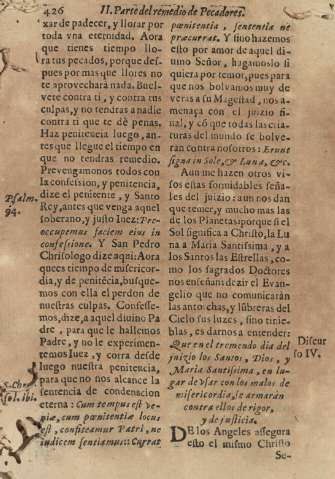 426 II. Parte del remedio de Pecadores.
xar de padecer, y llorar por
toda vna eternidad. Aora
que tienes tiempo llo-
ra tus pecados, porque des-
pues por mas que llores no
te aprovechará nada. Buel-
vete contra ti, y contra tus
culpas, y no tendras a nadie
contra ti que te dè penas.
Haz penitencia luego, an-
tes que llegue el tiempo en
que no tendras remedio.
Prevengamonos todos con
la confession, y penitencia,
dize el penitente, y Santo
Rey, antes que venga aquel
soberano, y justo Iuez: Præ-
occupemus faciem eius in
confessione. Y San Pedro
Chrisologo dize aqui: Aora
que es tiempo de misericor-
dia, y de penitēcia, busque-
mos con ella el perdon de
nuestras culpas. Confesse-
mos, dize, a aquel diuino Pa
dre, para que le hallemos
Padre, y no le experimen-
temos Iuez, y corra desde
luego nuestra penitencia,
para que no nos alcance la
sentencia de condenacion
eterna: Cum tempus est ve-
niæ, cum pœnitentiæ locus
est, confiteamur Patri, ne
iudicem sentiamus: Currat
Psalm.
94.
S. Chri
sol. ibi.
pœnitentia, sententia ne
præcurrat. Y sino hazemos
esto por amor de aquel di-
uino Señor, hagamoslo si
quiera por temor, pues para
que nos bolvamos muy de
veras a su Magestad, nos a-
menaça con el juizio fi-
nal, y cō que todas las cria-
turas del mundo se bolve-
ran contra nosotros: Erunt
signa in Sole, & Luna, &c.
Aun me hazen otros vi-
sos estas formidables seña-
les del juizio: aun nos dan
que temer, y mucho mas las
de los Planetas; porque si el
Sol significa a Christo, la Lu
na a Maria Santissima, y a
los Santos las Estrellas, co-
mo los sagrados Doctores
nos enseñan; dezir el Evan-
gelio que no comunicarán
las antorchas, y lūbreras del
Cielo sus luzes, sino tinie-
blas, es darnos a entender:
Que en el tremendo dia del
juizio los Santos, Dios, y
Maria Santissima, en lu-
gar de vsar con los malos de
misericordia, se armarán
contra ellos de rigor,
y de justicia.
DE los Angeles assegura
esto el mismo Christo
Se-
Discur
so IV.